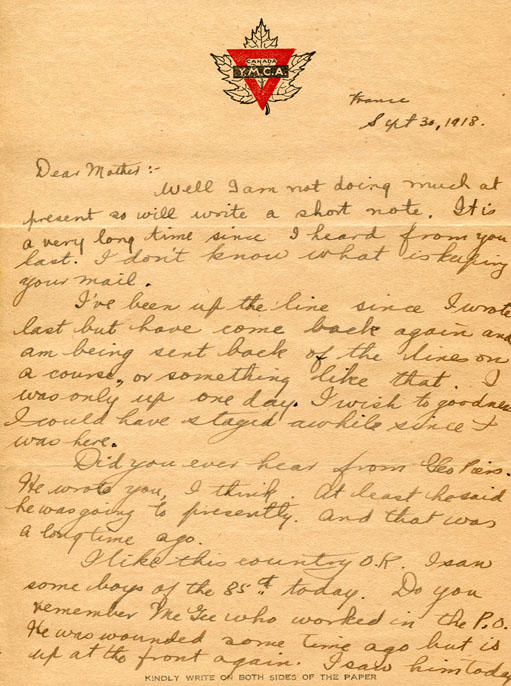 CANADA
Y.M.C.A.
France
Sept 30, 1918.
Dear Mother:-
Well I am not doing much at
present so will write a short note. It is
a very long time since I heard from you
last. I don't know what is keeping
your mail.
I've been up the line since I wrote
last but have come back again and
am being sent back of the lines on
a course, or something like that. I
was only up one day. I wish to goodness
I could have stayed awhile since I
was here.
Did you ever hear from Geo Piers.
He wrote you, I think. At least he said
he was going to presently. And that was
a long time ago.
I like this country O.K. I saw
some boys of the 85th today. Do you
remember McGee who worked in the P.O.
He was wounded some time ago but is
up at the front again. I saw him today
KINDLY WRITE ON BOTH SIDES OF THE PAPER